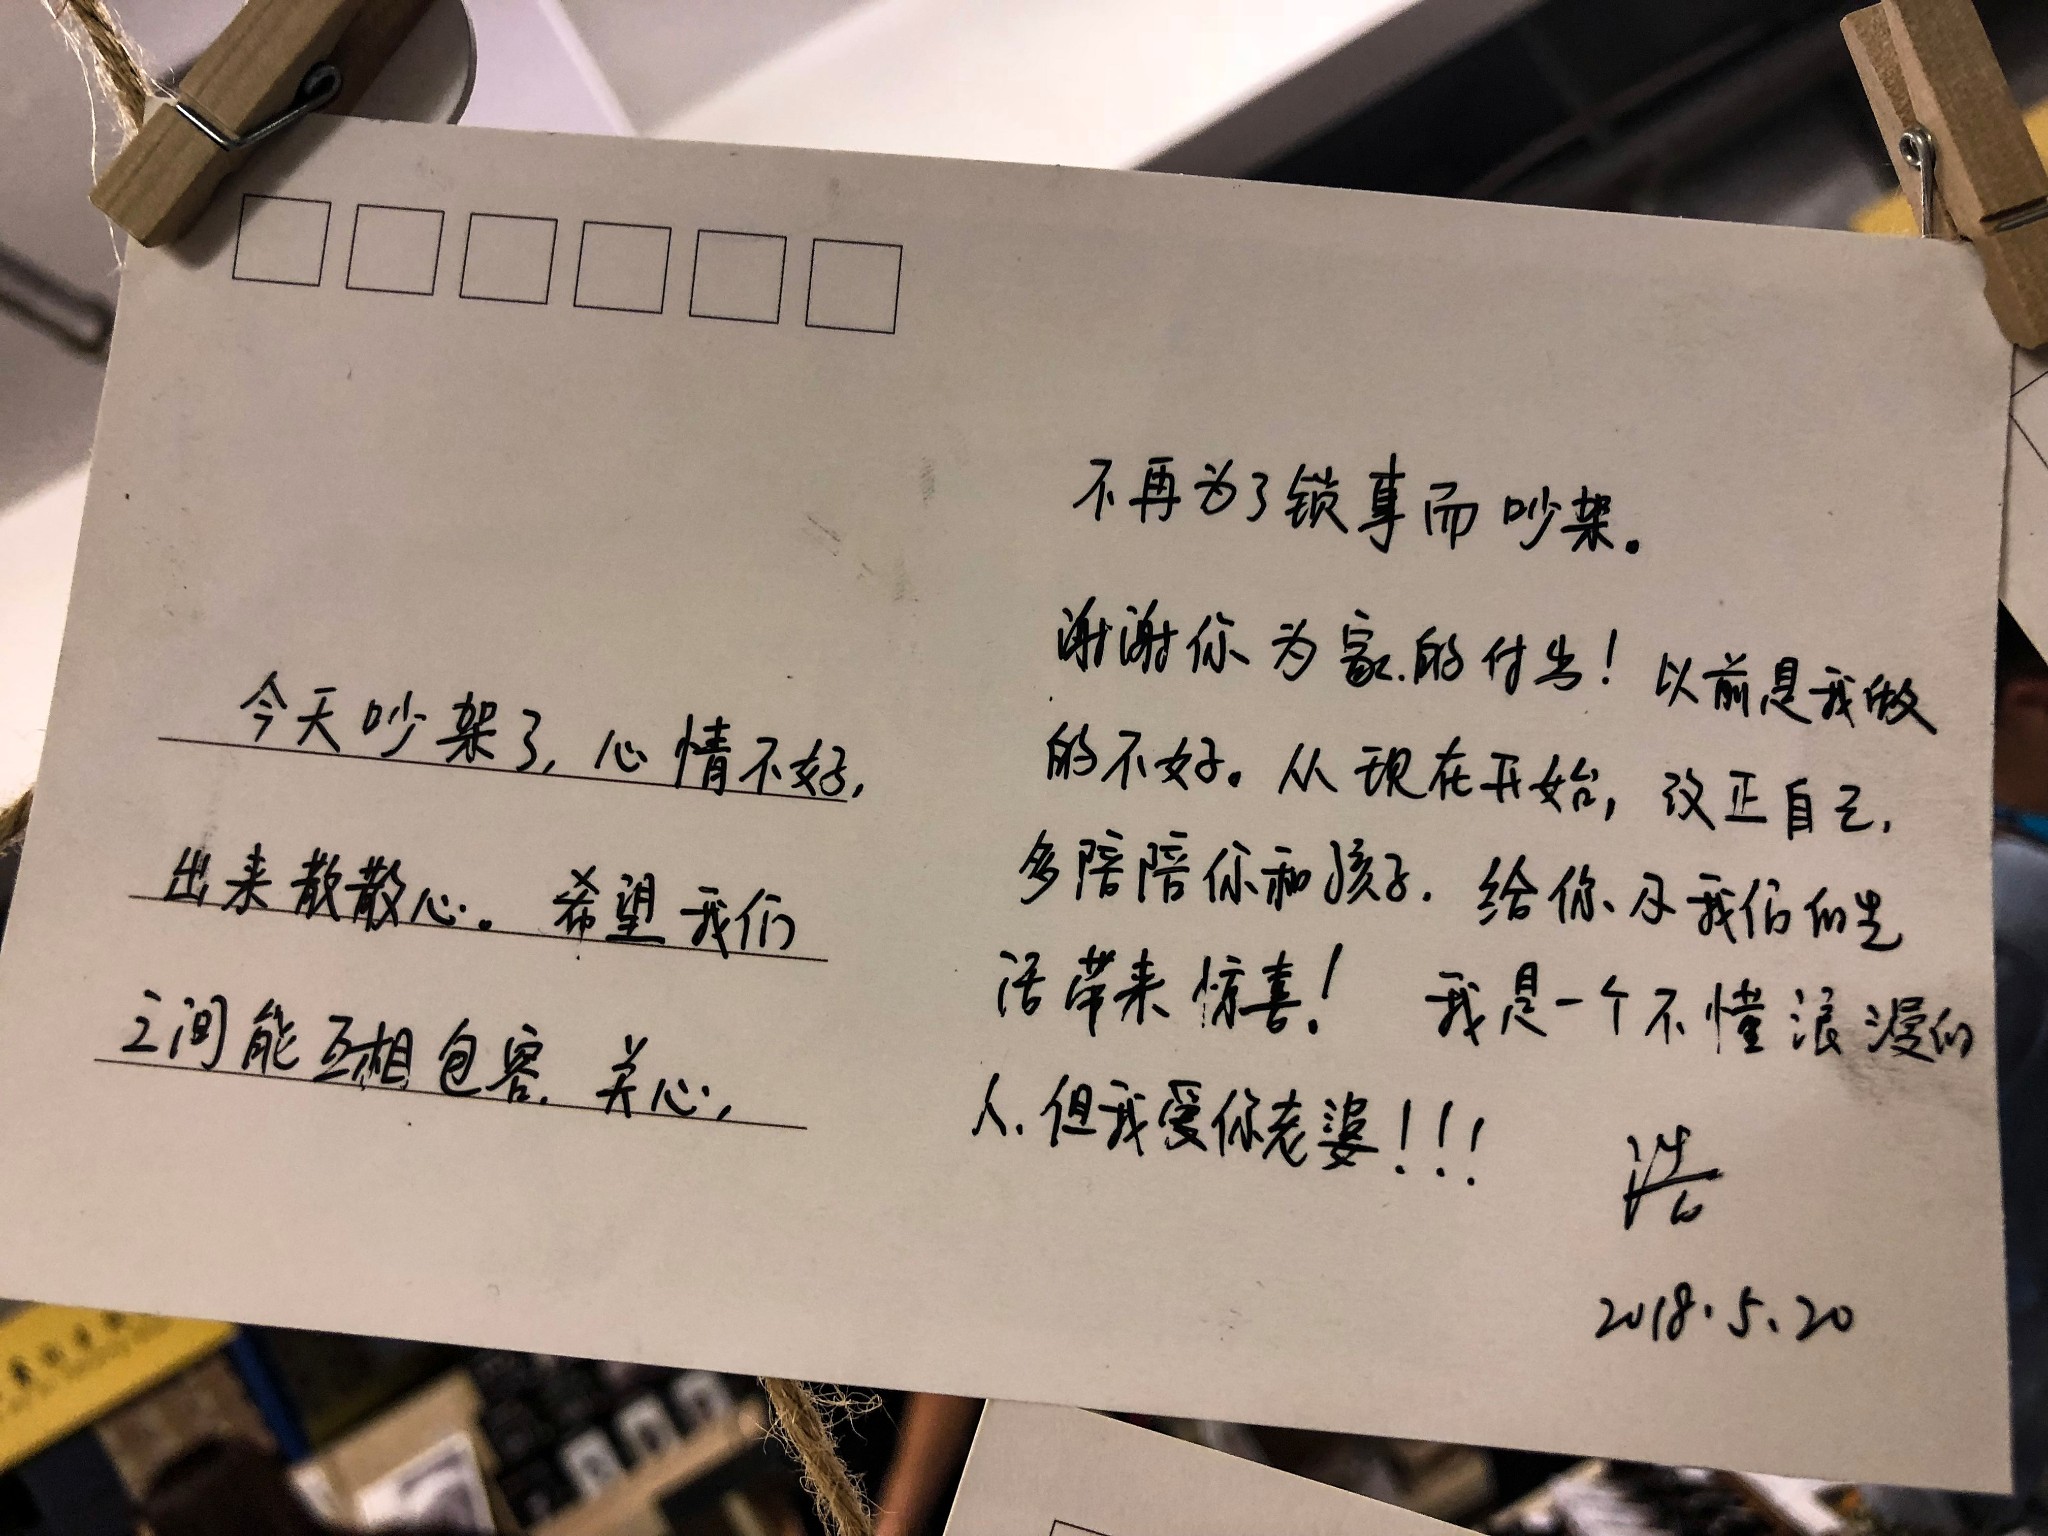 今天吵架了,心情不好,
出来散散心。希望我们
之间能互相包容.关心,
不再为了锁事而吵架。
谢谢你为家.的付出!以前是我做
的不好。从现在开始,改正自己,
多陪陪你和孩子.给你及我们的生
活带来惊喜!我是一个不懂浪漫的
人.但我爱你老婆!!!
浩
2018.5.20